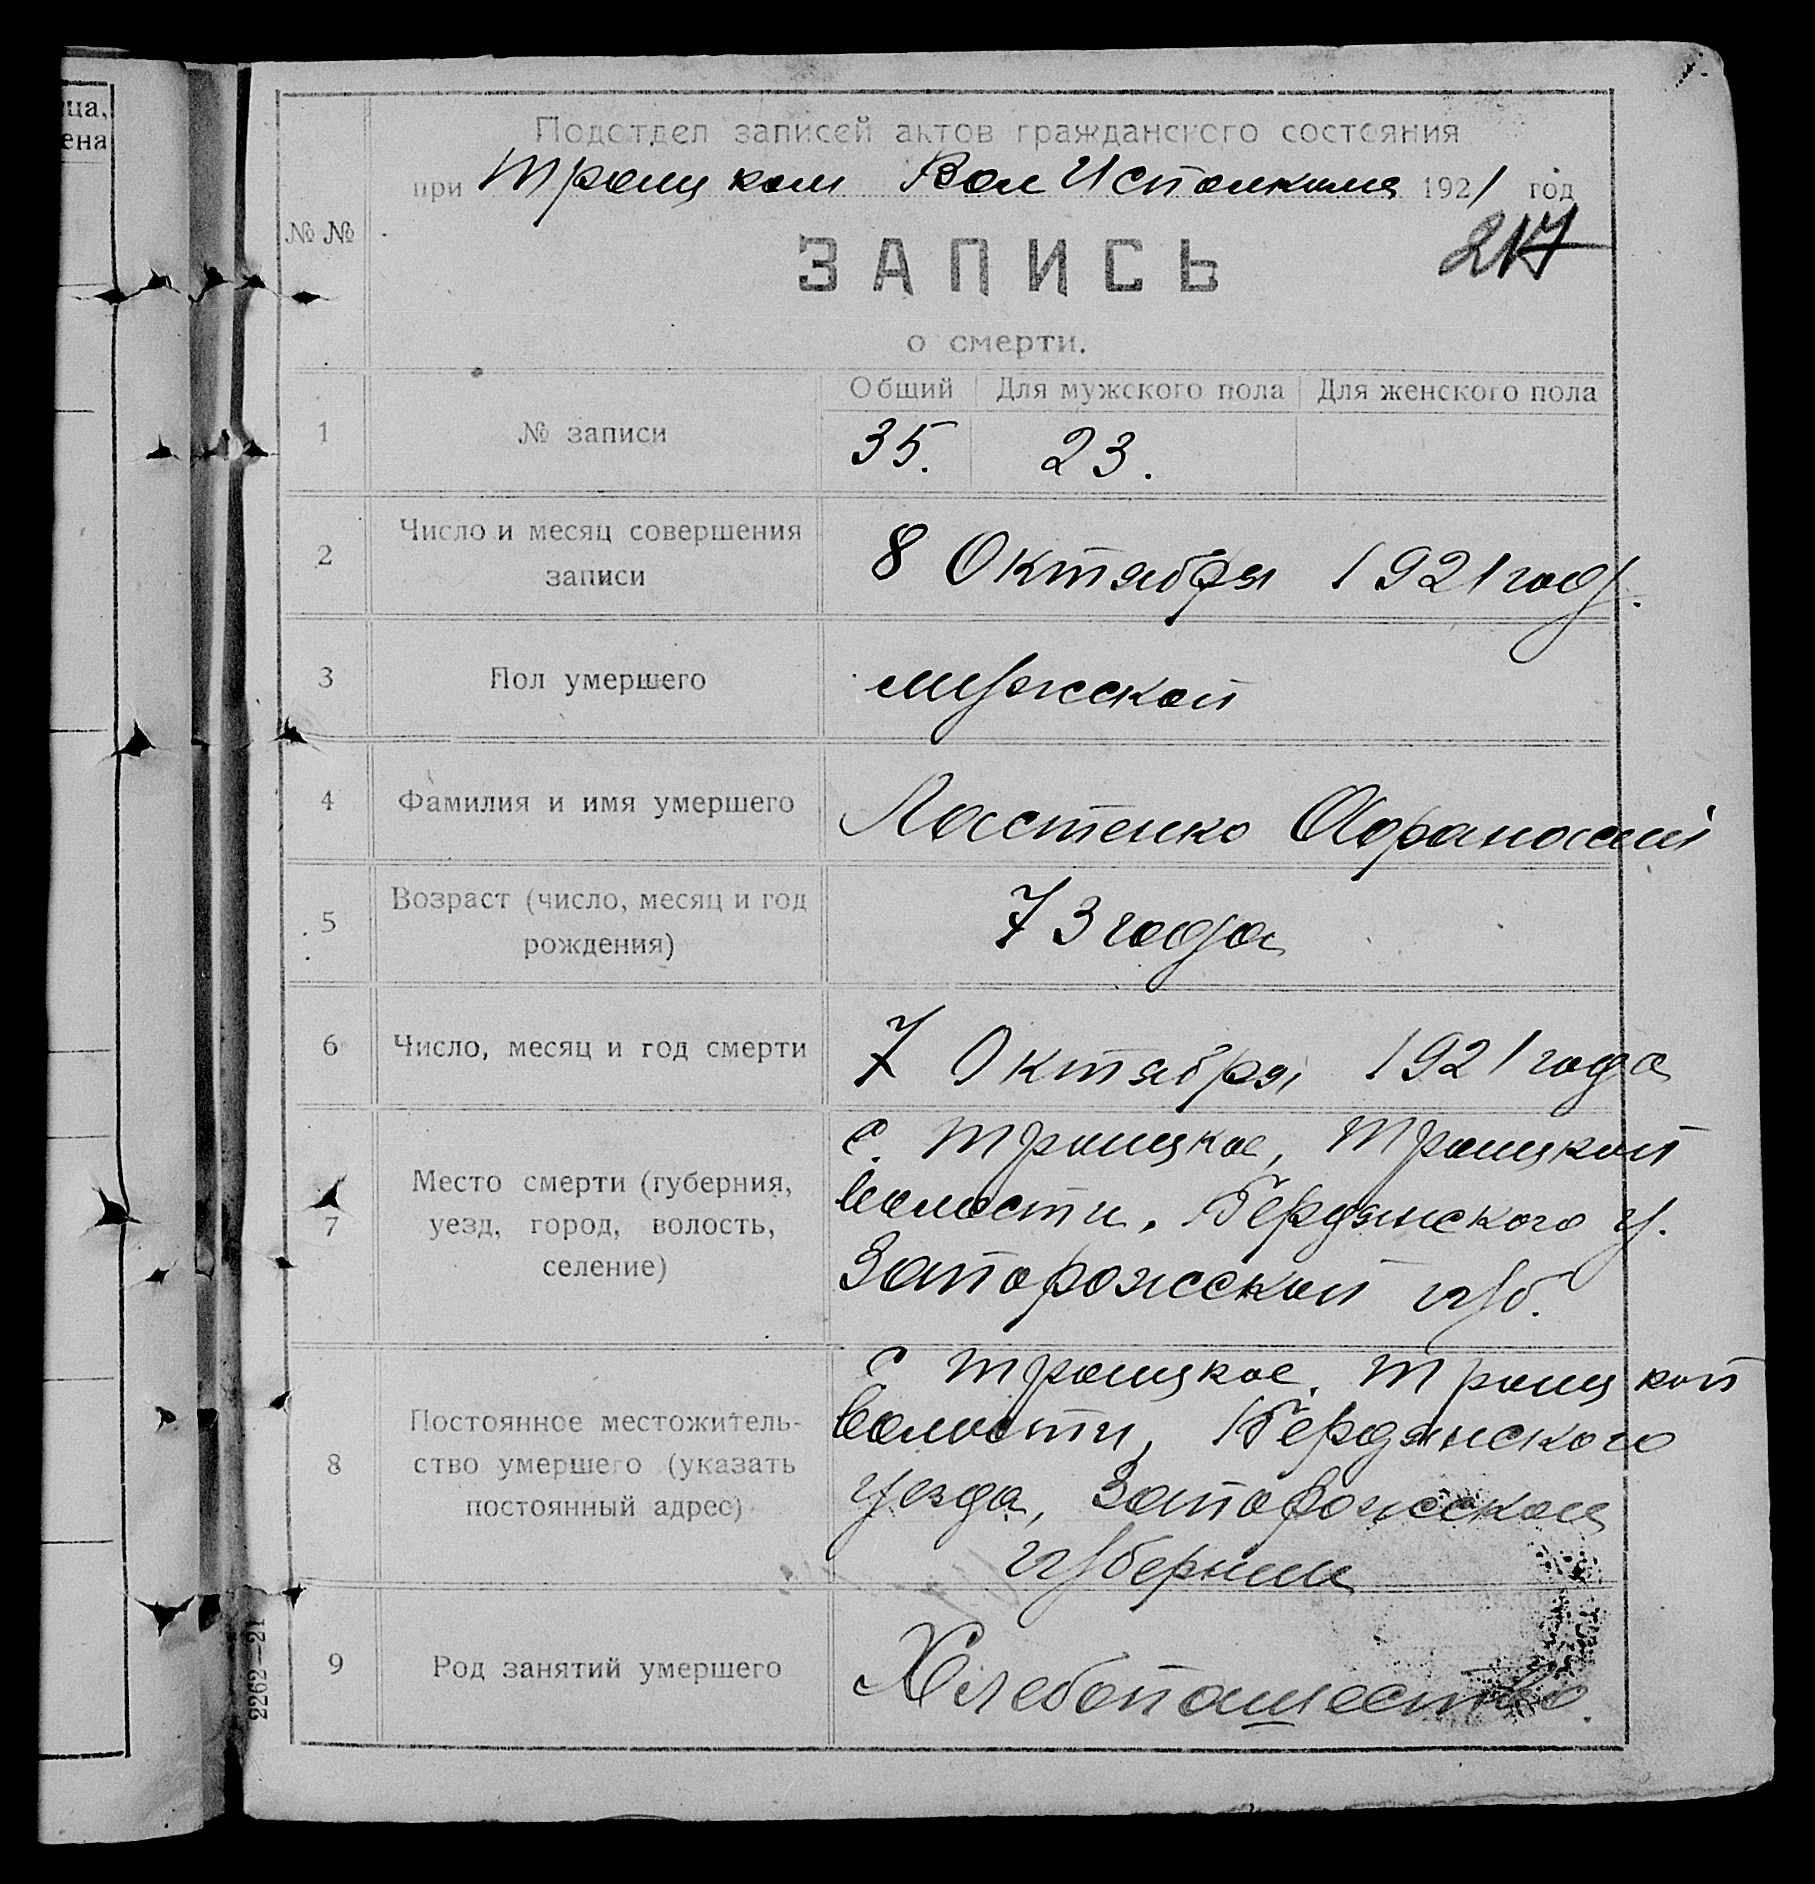 ца,
ена
Подотдел записей актов гражданского состояния
при Троицком ВолИсполкоме 1921 год
№ №
217
ЗАПИСЬ
о смерти.
Общий Для мужского пола Для женского пола
1 № записи 35. 23.
2 Число и месяц совершения
записи
8 Октября 1921 год.
3 Пол умершего мужской
4 Фамилия и имя умершего Ластенко Афанасий
5 Возраст (число, месяц и год
рождения)
73 года
6 Число, месяц и год смерти 7 Октября 1921 года
7 Место смерти (губерния,
уезд, город, волость,
селение)
с. Троицкое, Троицкой
волости, Бердянского у.
Запорожской губ.
8 Постоянное местожитель-
ство умершего (указать
постоянный адрес)
с Троицкое, Троицкой
волости, Бердянского
уезда, Запорожской
губернии
9 Род занятий умершего Хлебопашество.
2262—21